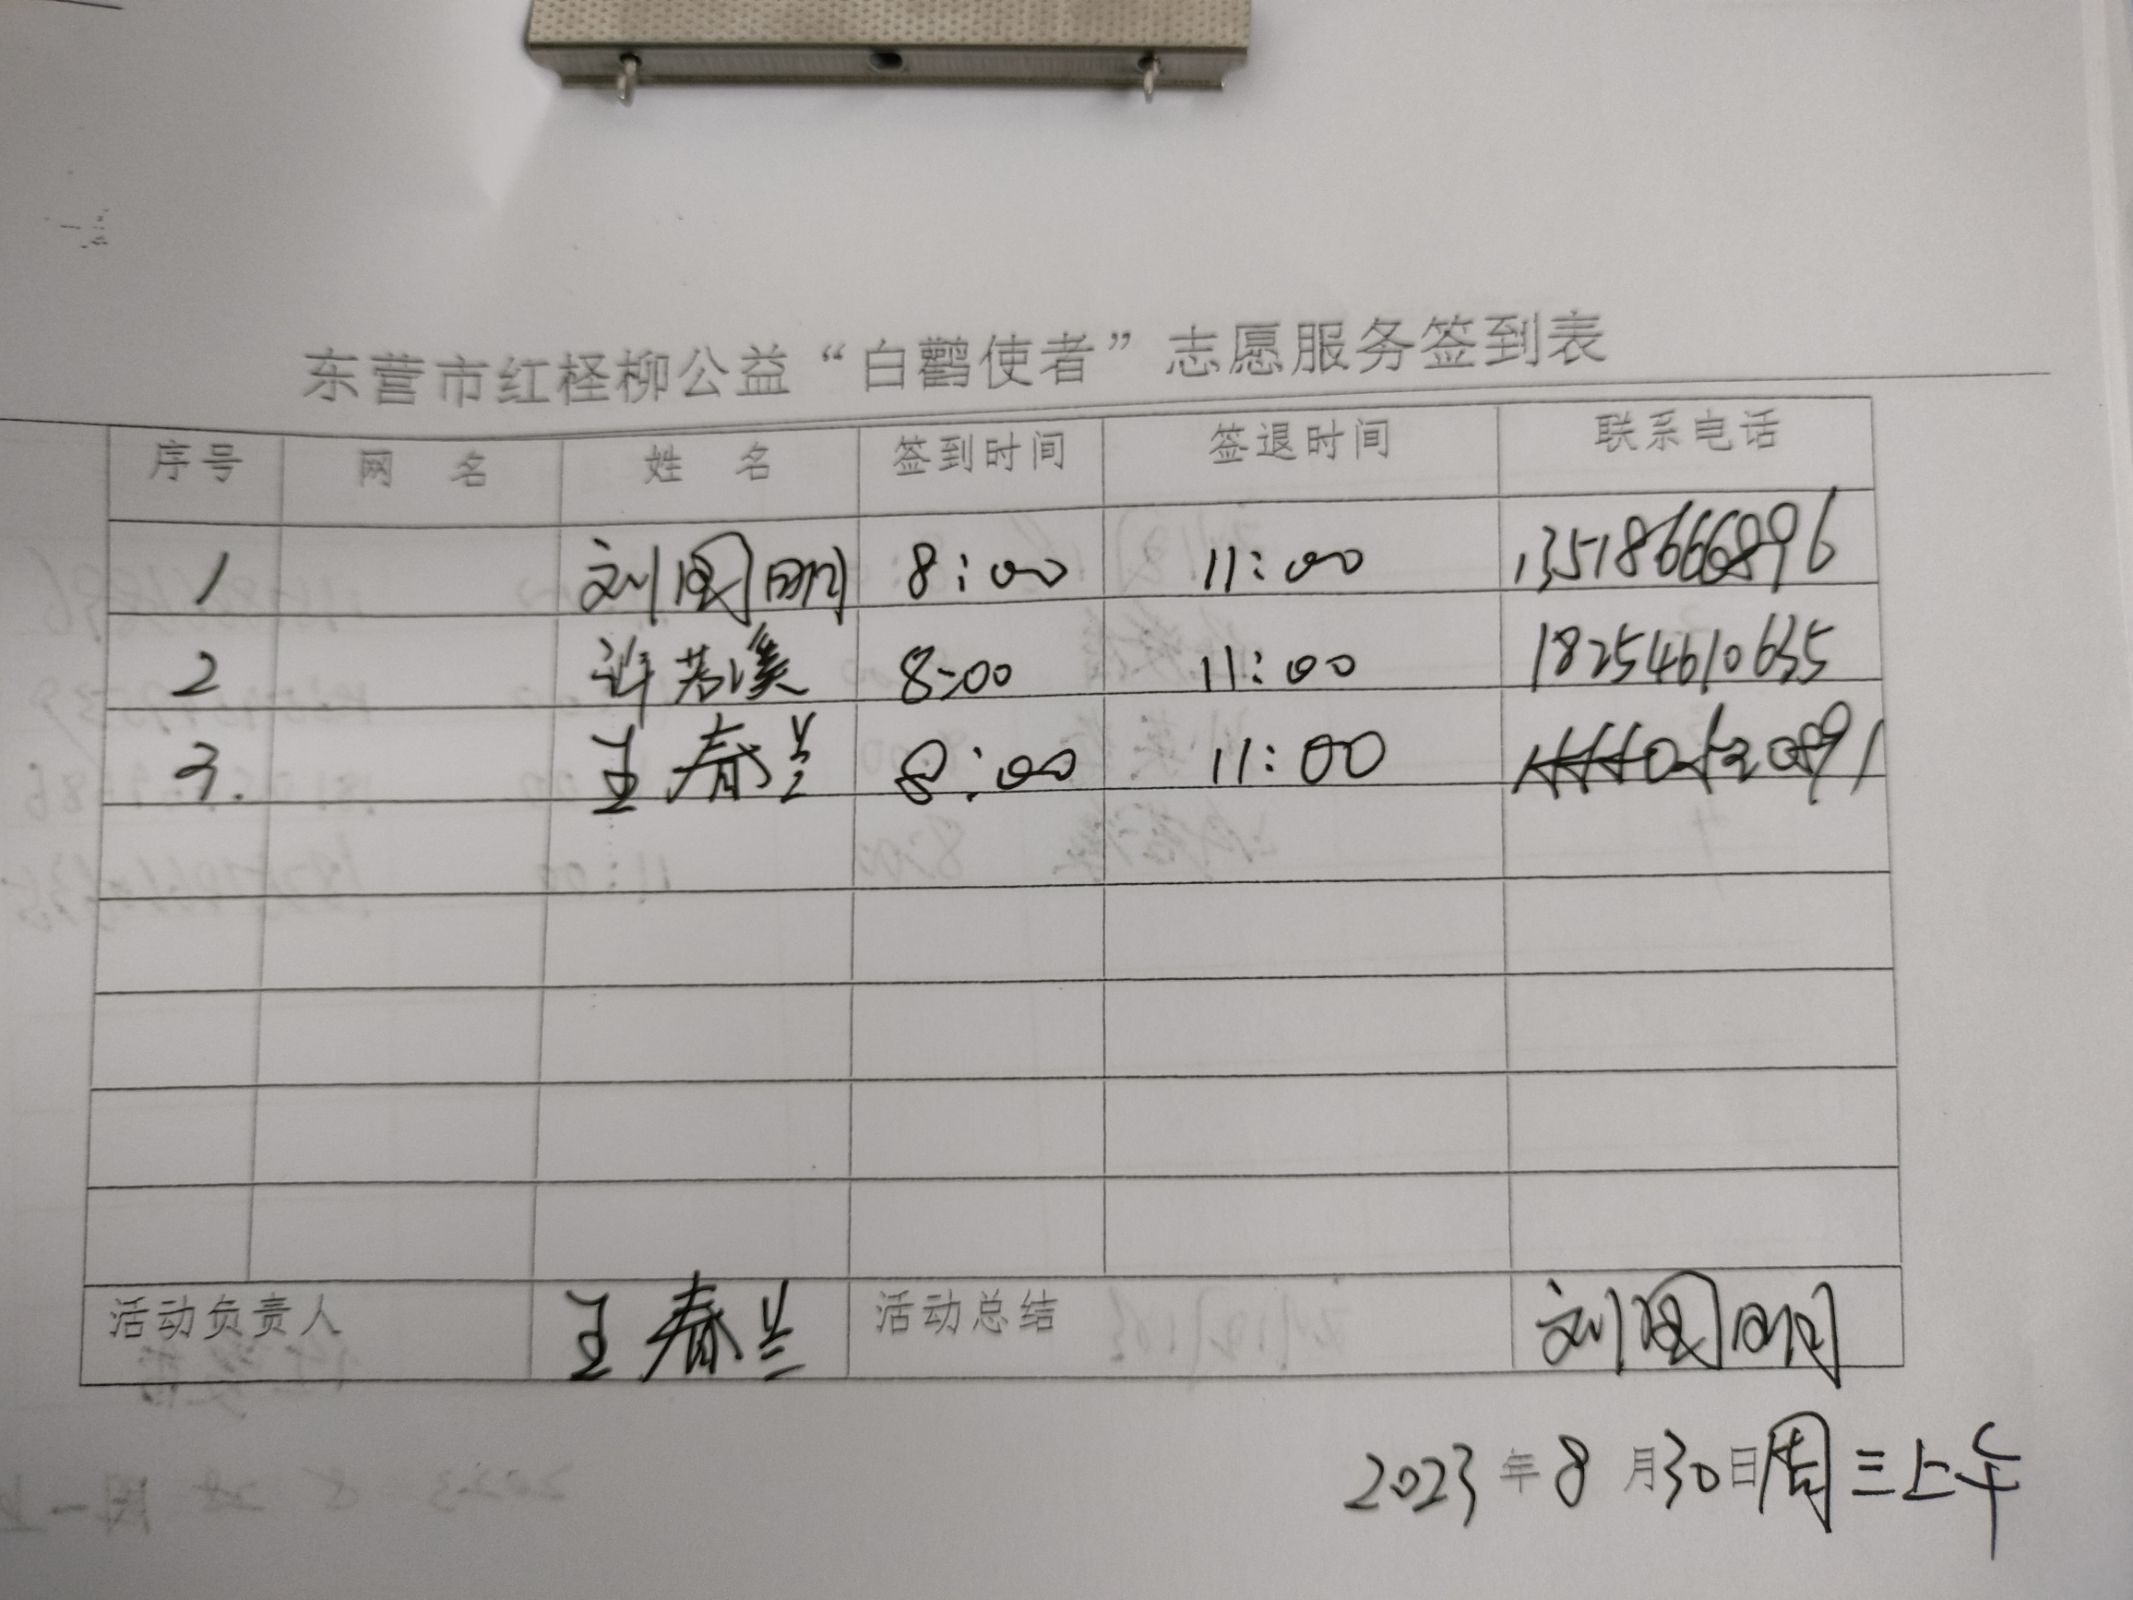 东营市红柽柳公益“白鹳使者”志愿服务签到表
序号 网 名 姓 名 签到时间 签退时间 联系电话
1 刘国明 8:00 11:00 13518666896
2 许若溪 8:00 11:00 18254610635
3. 王春兰 8:00 11:00
活动负责人 王春兰 活动总结 刘国明
2023年8月30日周三上午